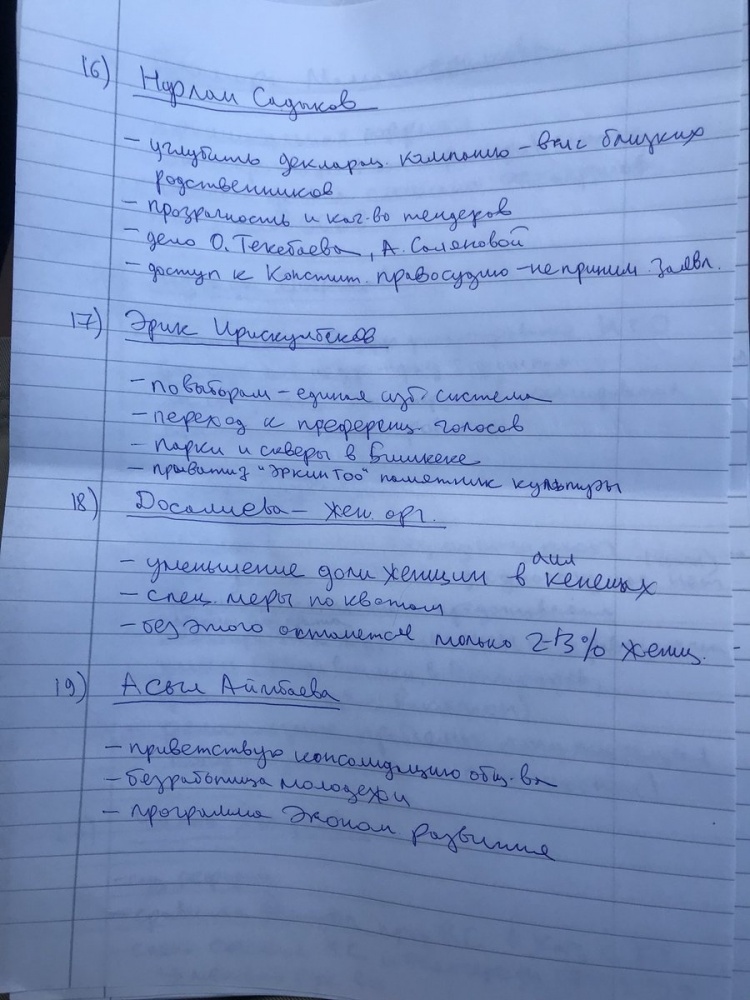 16) Нурлан Садыков
- углубить декларац. кампанию - вкл с близких
родственников
- прозрачность и кол-во тендеров
- дело О. Текебаева, А. Саляновой
- доступ к Констит. правосудию - не приним. заявл.
17) Эрик Ирискулбеков
- по выборам - единая изб. система
- переход к преференц. голосов
- парки и скверы в Бишкеке
- приватиз "Эркин Тоо" памятник культуры
18) Досалиева - жен. орг.
- уменьшение доли женщин в аил кенешах
- спец. меры по квотам
- без этого останется только 2-3% женщ.
19) Асыл Айтбаева
- приветствую консолидацию общ-ва
- безработица молодежи
- программа эконом развития